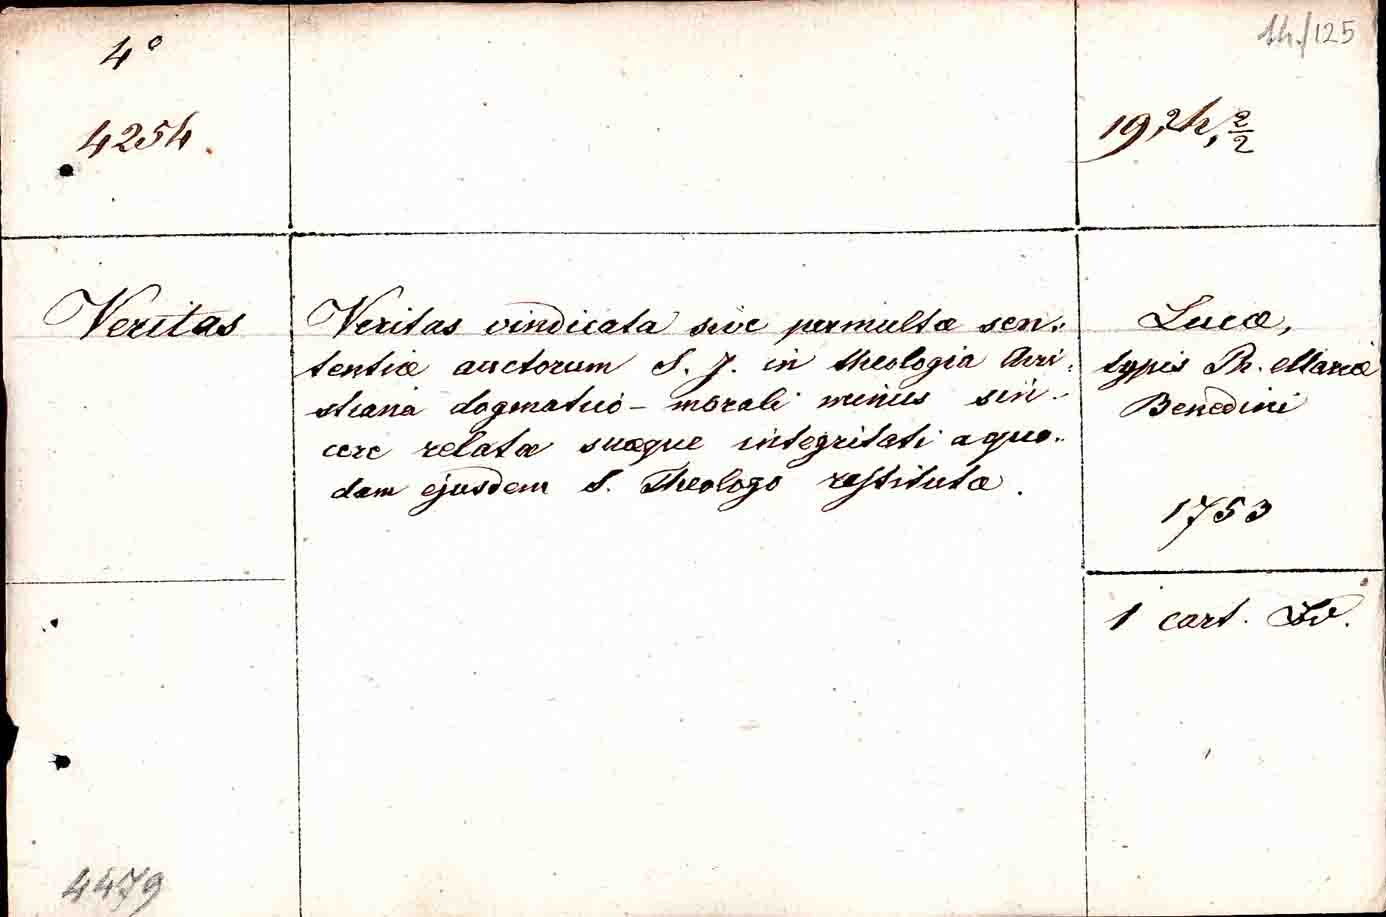 4°
4254.
125
19,2h, 2/2
Veritas
Veritas vindicata sive permultæ sen-
tentiæ auctorum S. J. in theologia Chri-
stiana dogmatico-morali minus sin-
cere relatæ suæque integritati a quo-
dam ejusdem S. Theologo restitutæ.
Lucæ,
typis Ph. Mariæ
Benedini
1753
1 cart.
4479